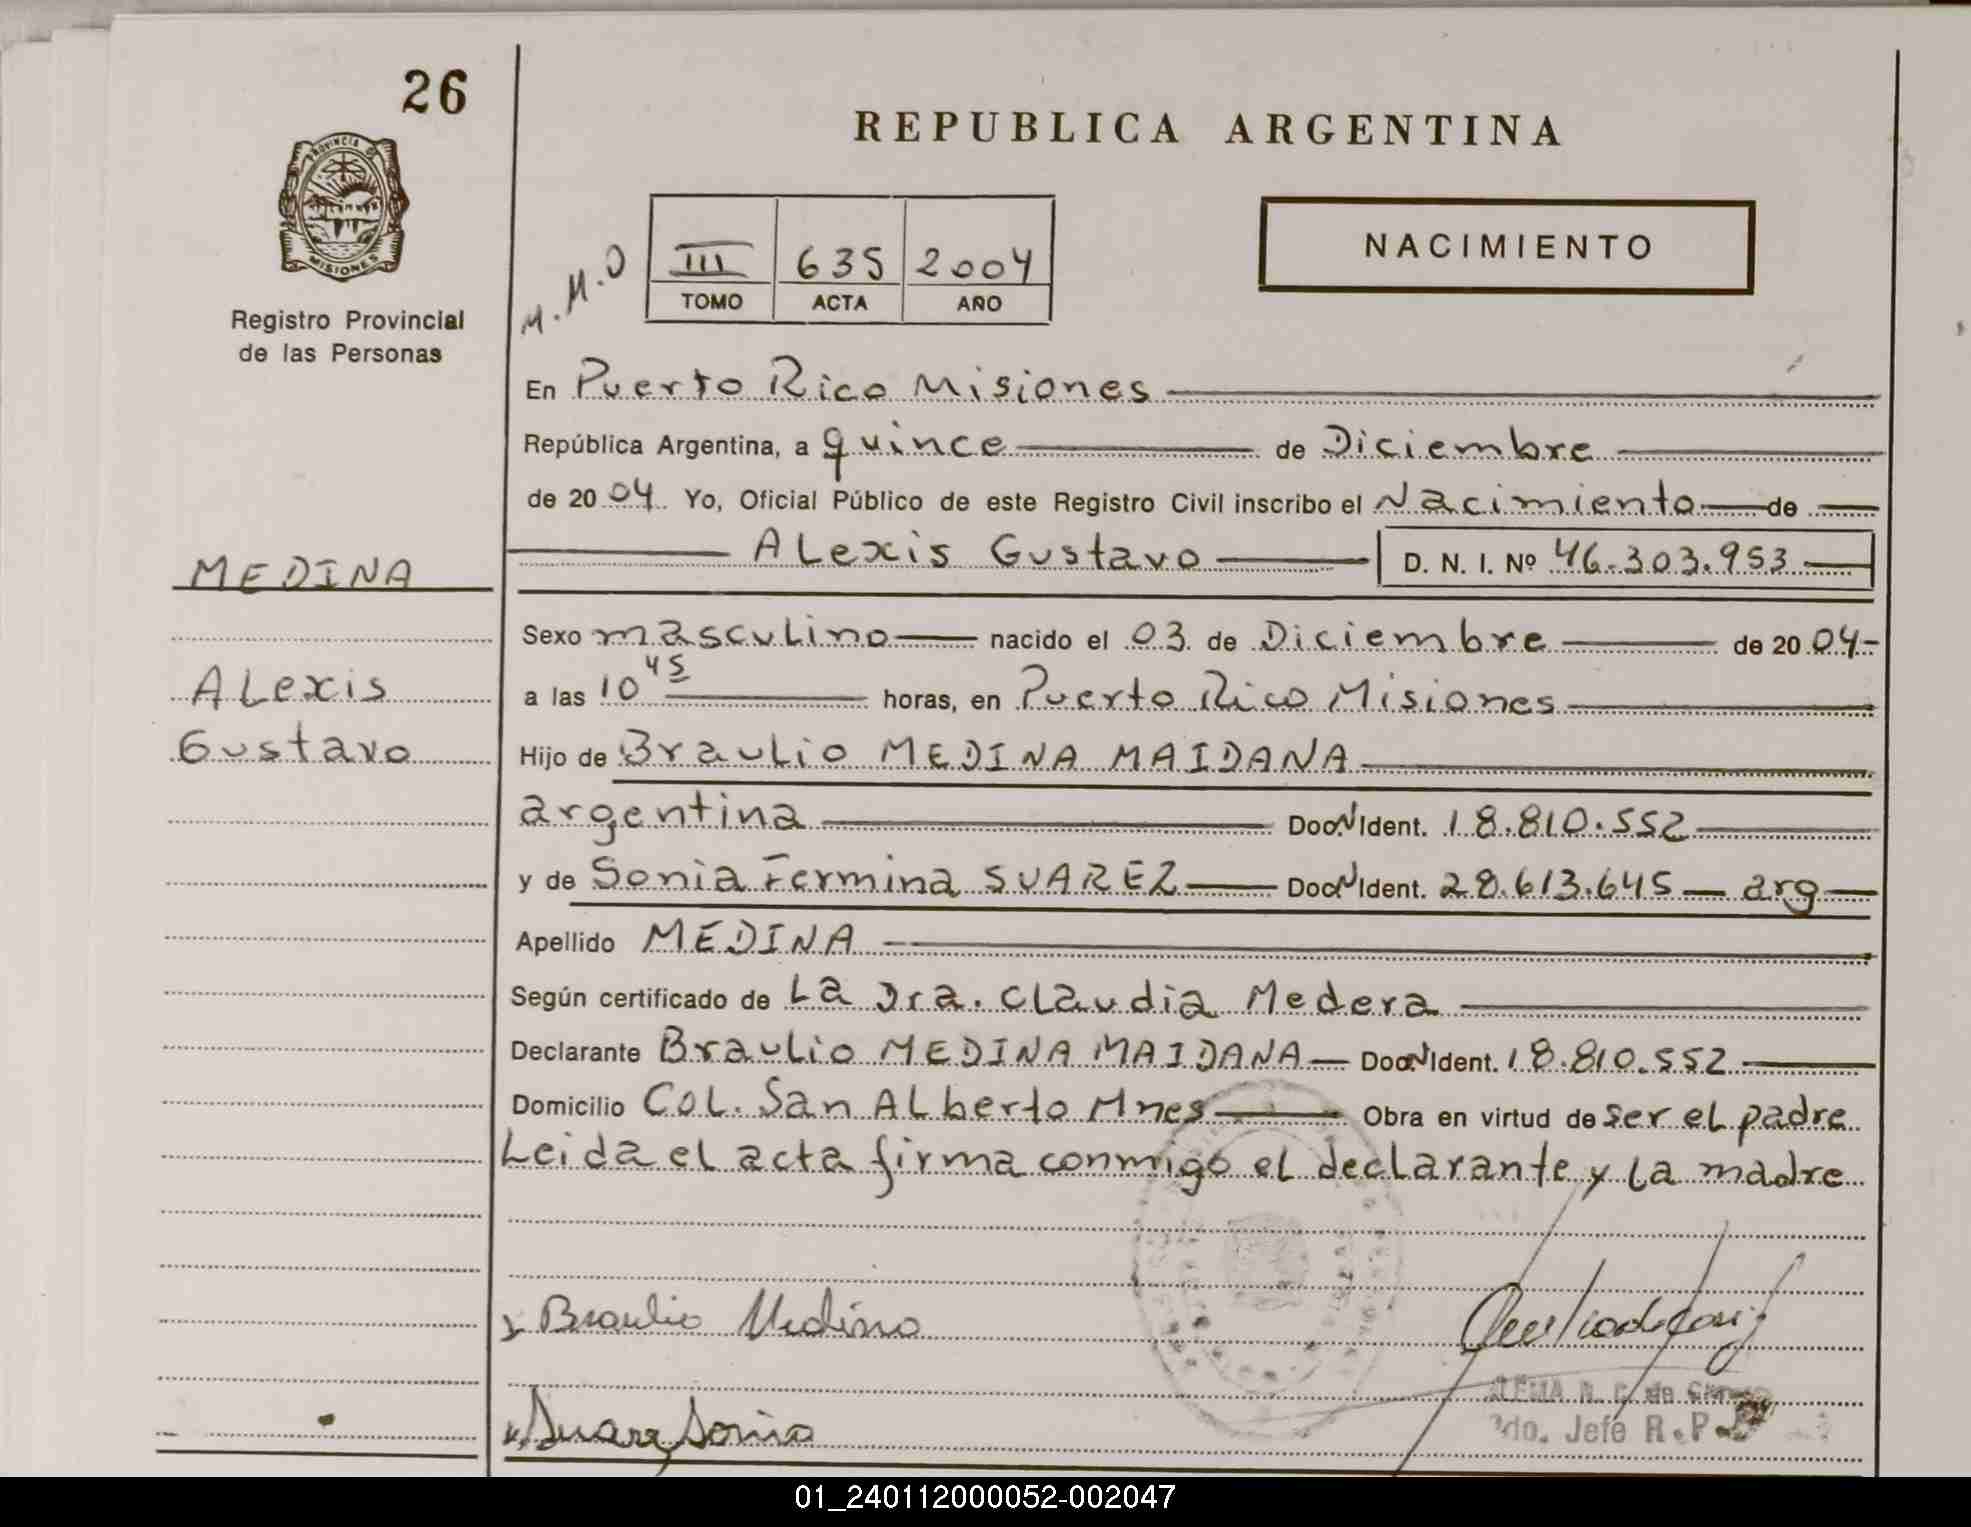 26
REPUBLICA ARGENTINA
PROVINCIA DE
MISIONES
Registro Provincial
de las Personas
M.M.O
III 635 2004
TOMO ACTA AÑO
NACIMIENTO
En Puerto Rico Misiones
República Argentina, a quince de Diciembre
de 2004 Yo, Oficial Público de este Registro Civil inscribo el Nacimiento de
Alexis Gustavo D. N. I. Nº 46.303.953
MEDINA
Alexis
Gustavo
Sexo masculino nacido el 03 de Diciembre de 2004
a las 10 45 horas, en Puerto Rico Misiones
Hijo de Braulio MEDINA MAIDANA
argentina Doc. N Ident. 18.810.552
y de Sonia Fermina SUAREZ Doc. N Ident. 28.613.645 arg
Apellido MEDINA
Según certificado de La Dra. Claudia Medera
Declarante Braulio MEDINA MAIDANA Doc. N Ident. 18.810.552
Domicilio Col. San Alberto Mnes Obra en virtud de ser el padre
Leida el acta firma conmigo el declarante y la madre
Braulio Medina
Suarez Sonia
N. C. de
do. Jefe R. P.
01_240112000052-002047